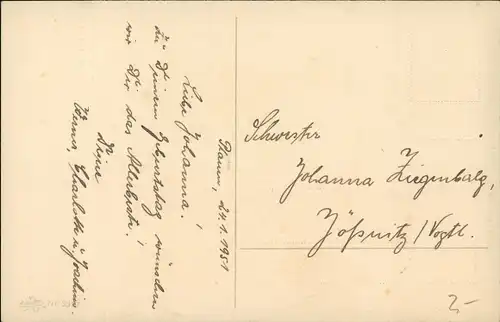 Plauen, 24.1.1951
Liebe Johanna!
Zu Deinem Geburtstag wünschen
wir Dir das Allerbeste!
Deine
Werner, Charlotte u. Joachim.
Schwester
Johanna Ziegenbalg,
Jößnitz/Vogtl.
2-